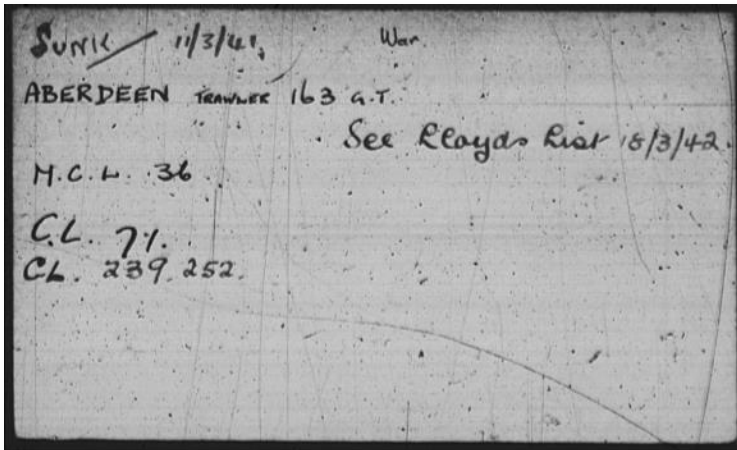 SUNK 11/3/41. War.
ABERDEEN TRAWLER 163 G.T.
See Lloyds List 18/3/42.
M.C.L. 36
C.L. 71.
CL. 239. 252.